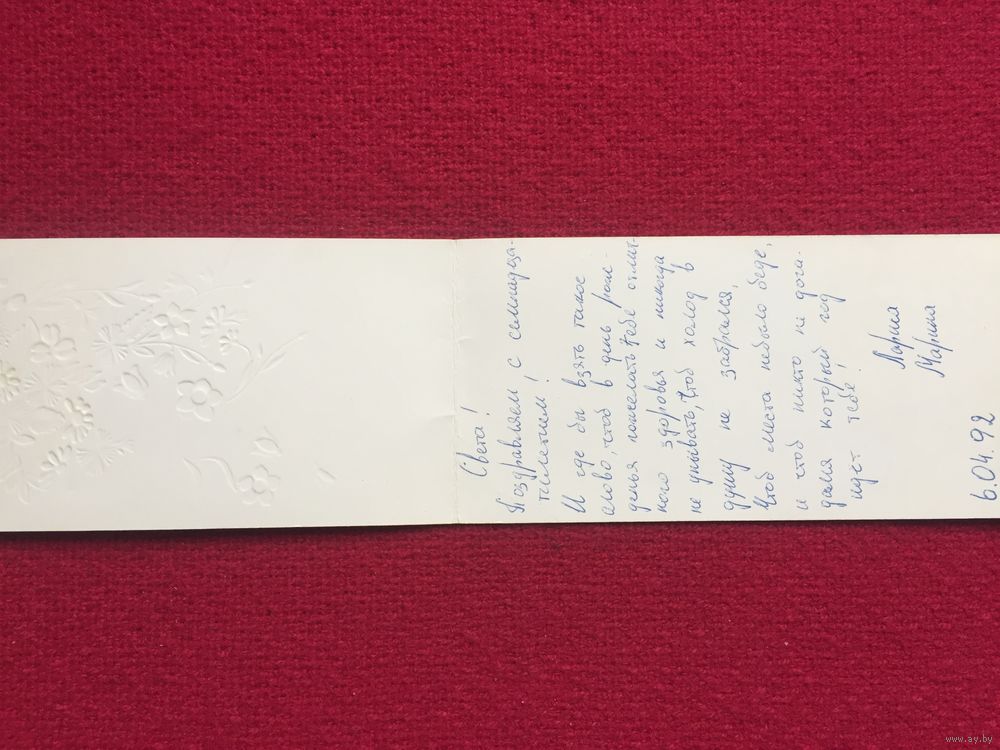 Света!
Поздравляем с семнадца-
тилетием!
И где бы взять такое
слово, чтоб в день рож-
денья пожелать тебе отлич-
ного здоровья и никогда
не унывать, чтоб холод в
душу не забрался,
Чтоб места небыло беде,
и чтоб никто не дога-
дался который год
идёт тебе!
Марина
Марина
6.04.92
www.ay.by